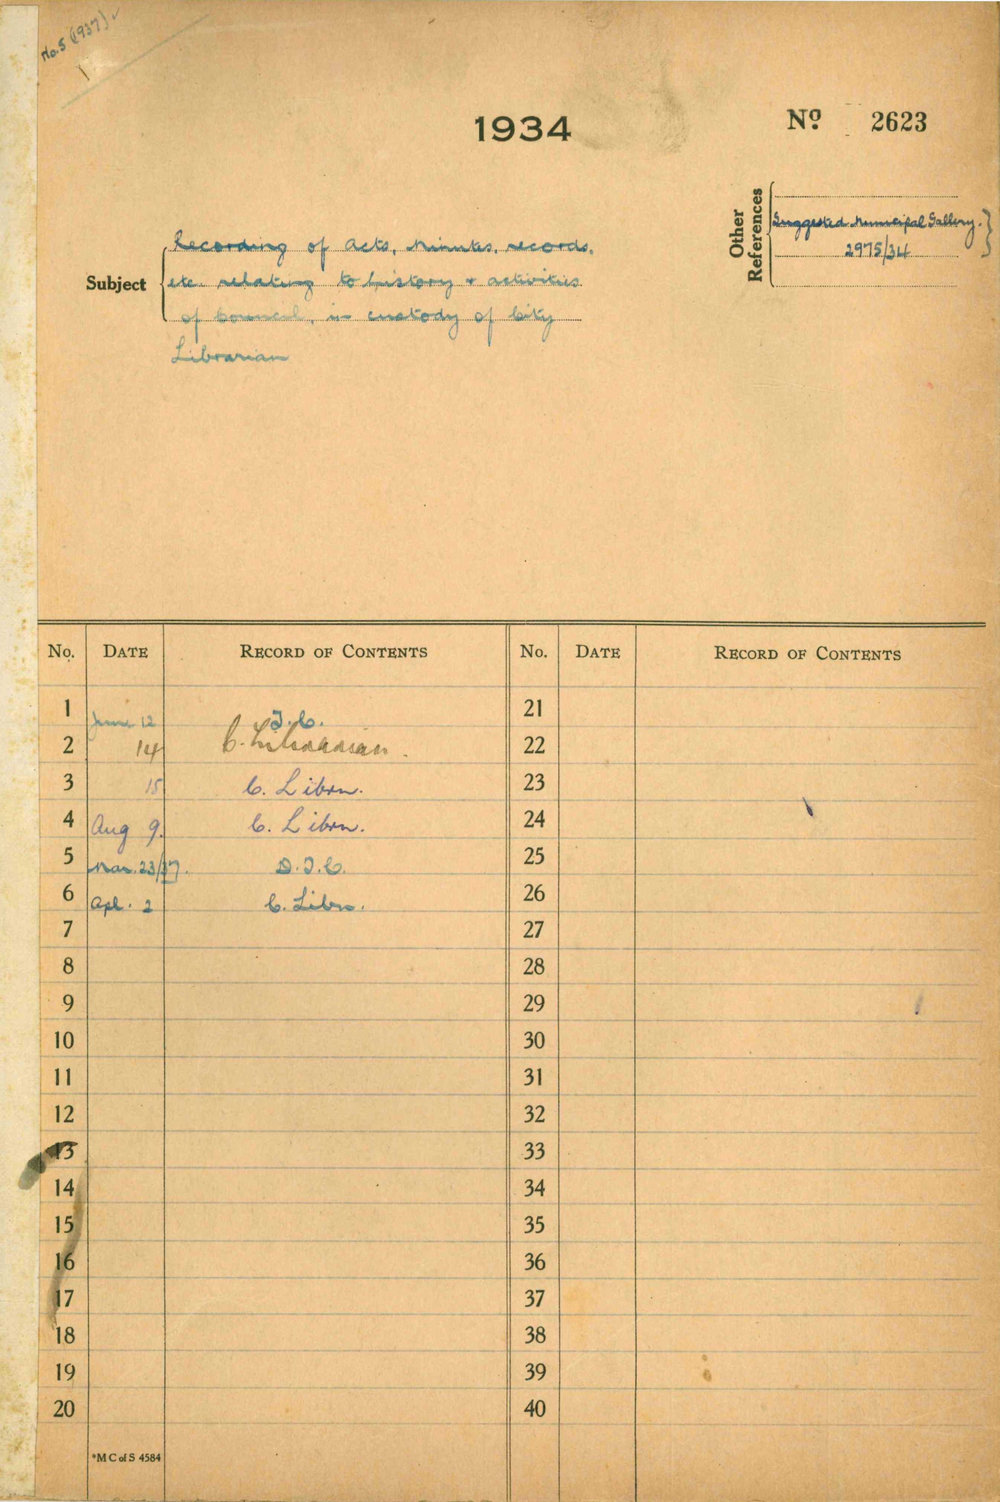 No. 5 (1937)
1934
No. 2623
Other References
Suggested Municipal Gallery.
2975/34
Subject
Recording of Acts, Minutes, records,
etc. relating to history & activities
of Council, in custody of City
Librarian
No. DATE RECORD OF CONTENTS No. DATE RECORD OF CONTENTS
1 June 12 T.C. 21
2 14 C. Librarian. 22
3 15 C. Librn. 23
4 Aug 9. C. Librn. 24
5 Mar. 23/37. D.T.C. 25
6 Apl. 2 C. Librn. 26
7 27
8 28
9 29
10 30
11 31
12 32
13 33
14 34
15 35
16 36
17 37
18 38
19 39
20 40
*M C of S 4584